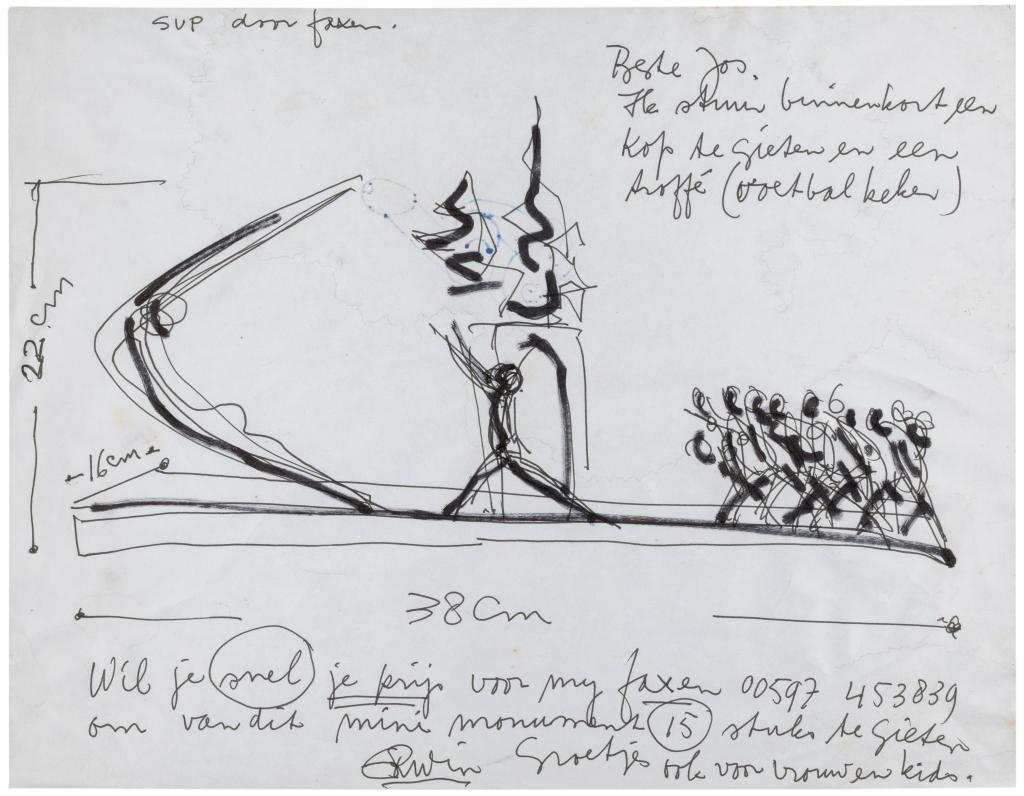 SVP door faxen.
Beste Jos.
Ik stuur binnenkort een
kop te gieten en een
troffé (voetbal beker)
22 cm
16 cm
38 cm
Wil je snel je prijs voor my faxen 00597 453839
om van dit mini monument 15 stuks te gieten
Erwin Groetjes ook voor vrouw en kids.